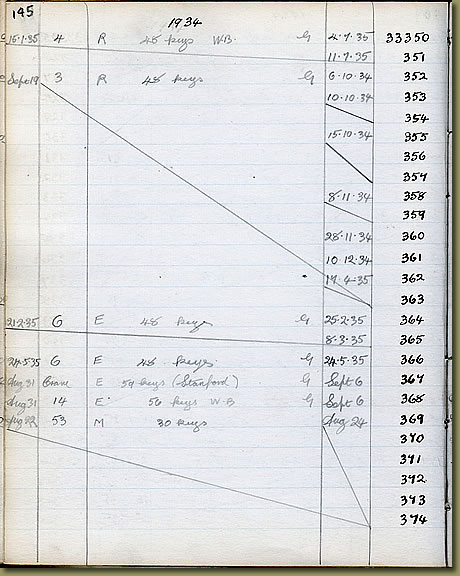 145
1934
15·1·35 4 R 48 keys W·B. G 4·7·35 33350
11·7·35 351
Sept 19 3 R 48 keys G 6·10·34 352
10·10·34 353
354
15·10·34 355
356
357
8·11·34 358
359
28·11·34 360
10·12·34 361
17·4·35 362
363
21·2·35 G E 48 keys G 25·2·35 364
8·3·35 365
24·5·35 G E 48 keys G 24·5·35 366
Aug 31 Crane E 59 keys (Stanford) G Sept 6 367
Aug 31 14 E 56 keys W·B G Sept 6 368
Aug 22 53 M 30 keys Aug 24 369
370
371
372
373
374